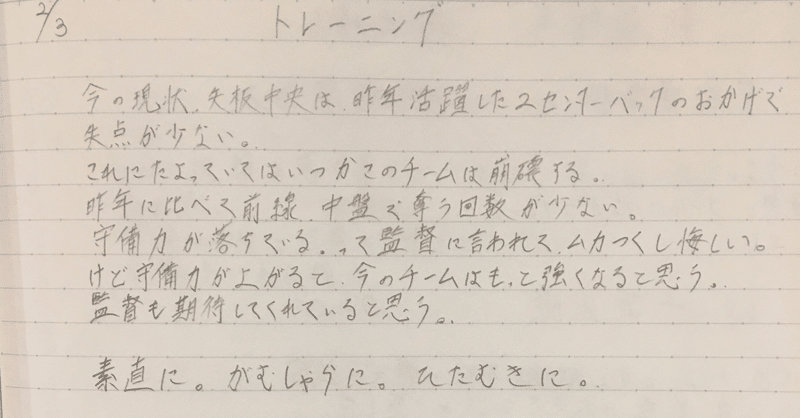 2/3
トレーニング
今の現状、矢板中央は、昨年活躍した2センターバックのおかげで
失点が少ない。
これにたよっていてはいつかこのチームは崩壊する。
昨年に比べて前線、中盤で奪う回数が少ない。
守備力が落ちている。って監督に言われて、ムカつくし悔しい。
けど守備力が上がると、今のチームはもっと強くなると思う。
監督も期待してくれていると思う。
素直に。がむしゃらに。ひたむきに。